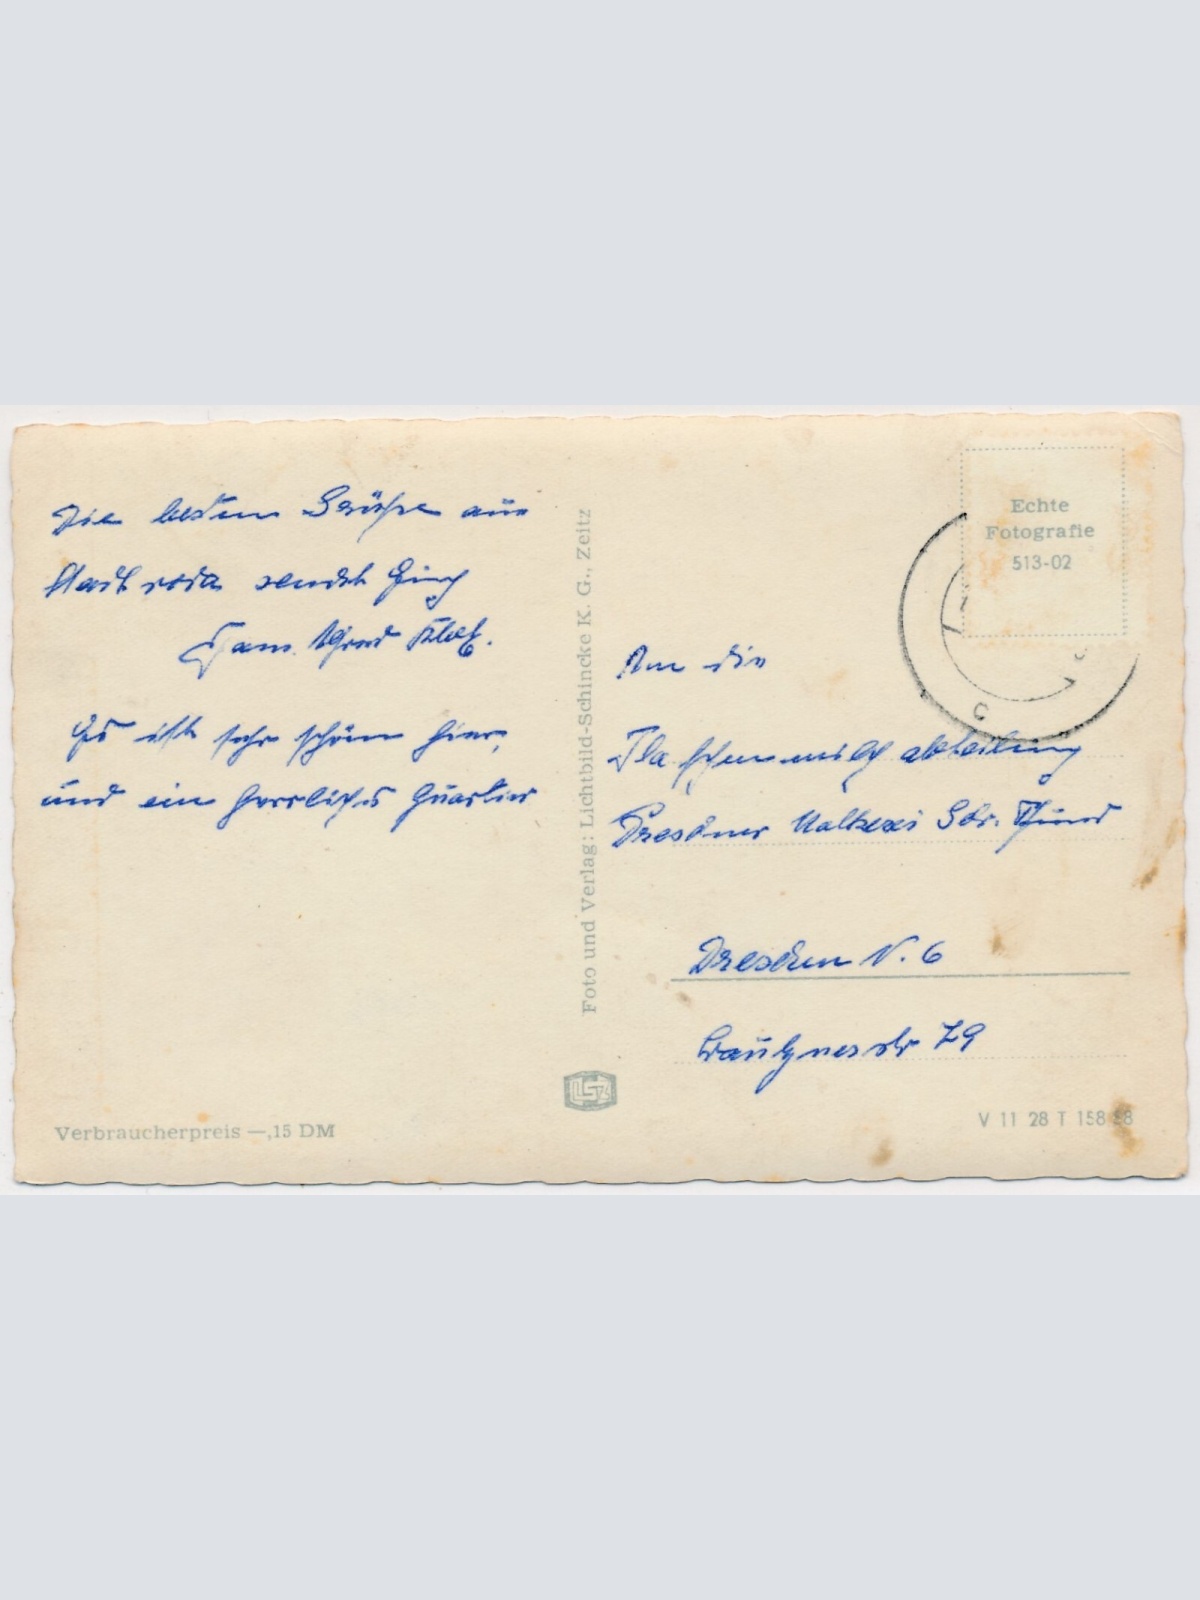 Die besten Grüße aus
Stadtroda sendet Euch
Fam.
Es ist sehr schön hier,
und ein herrliches Quartier
Foto und Verlag: Lichtbild-Schincke K. G., Zeitz
Verbraucherpreis —,15 DM
Echte
Fotografie
513-02
An die
Flaschenmilchabteilung
Dresdner Gbr. Pfund
Dresden N. 6
Bautznerstr 79
V 11 28 T 158